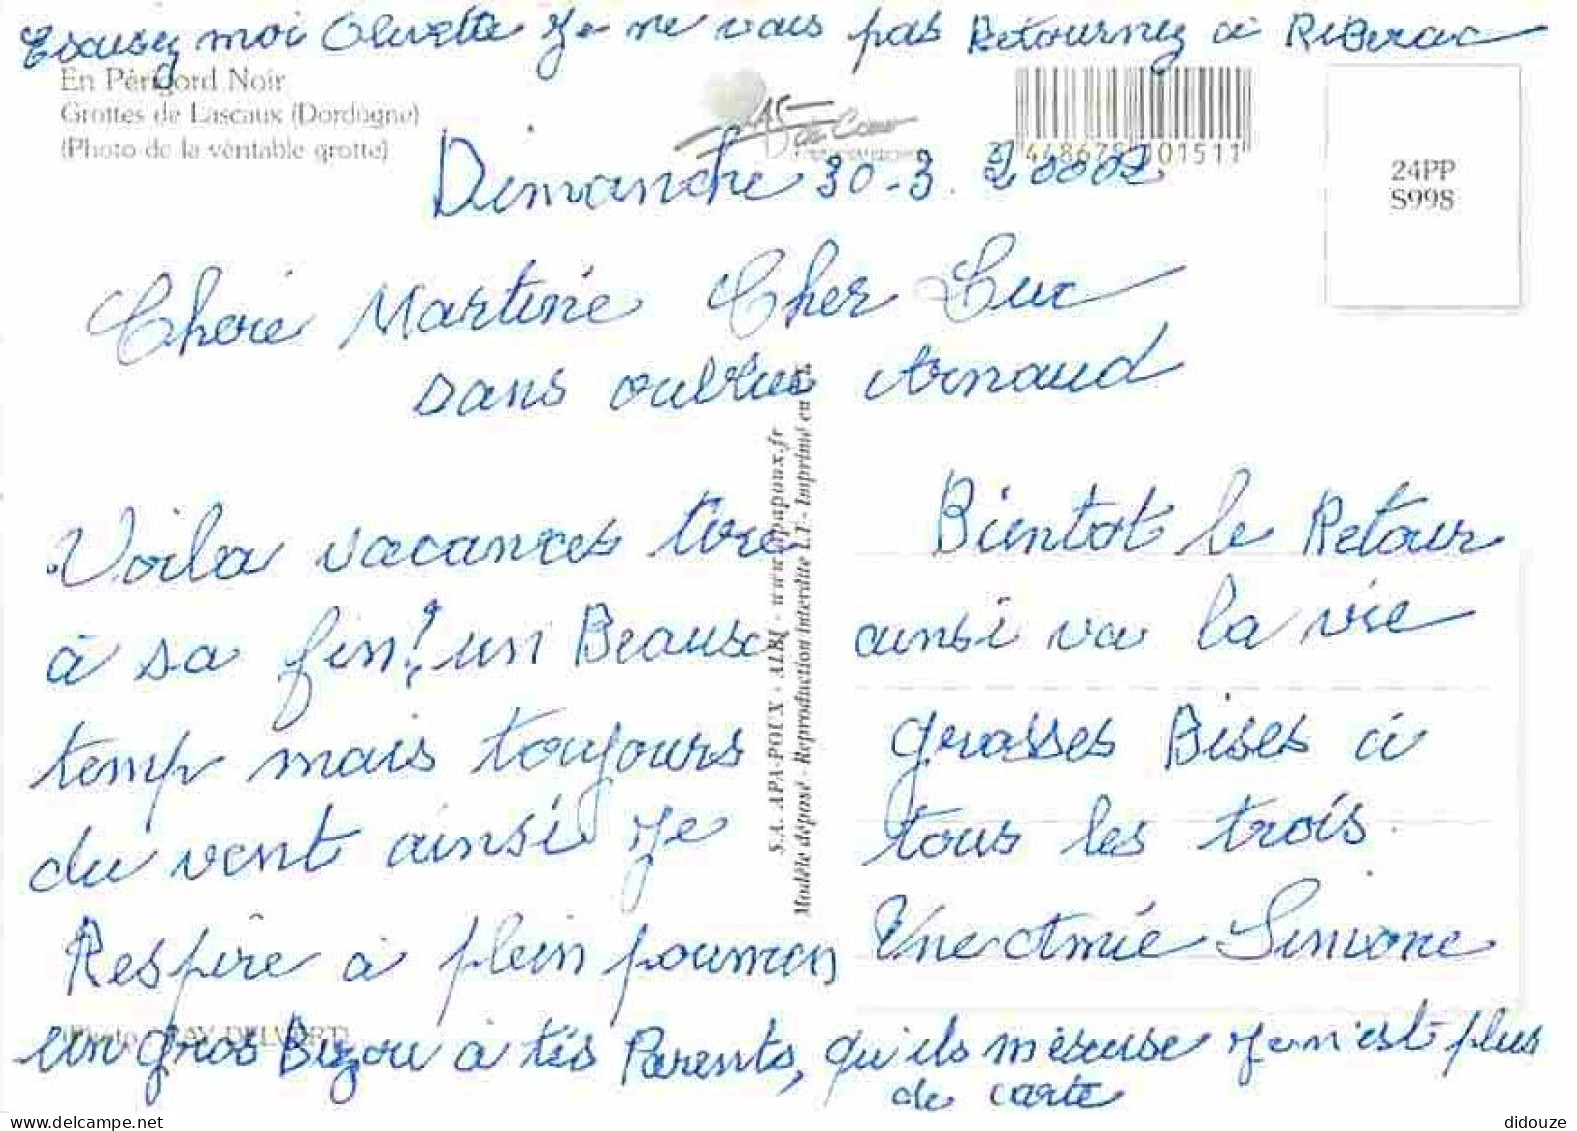 Excusez moi Olivette Je ne vais pas Retournez à Riberac
En Périgord Noir
Grottes de Lascaux (Dordogne)
(Photo de la véritable grotte)
24PP
S998
Dimanche 30-3. 20002
Cherie Martine Cher Luc
sans oublier Arnaud
Voila vacances tire
à sa fin! un Beause
temp mais toujours
du vent ainsi Je
Respire à plein poumon
S.A. APA-POUX - ALBI - www.apapoux.fr
Modèle déposé - Reproduction interdite L.T. - Imprimé en
Bientot le Retour
ainsi va la vie
grosses Bises à
tous les trois
Une Amie Simone
un gros Bizou à tes Parents, qu'ils m'escuse Je n'est plus
de carte
didouze @ delcampe.net